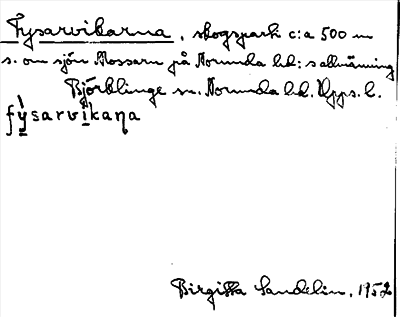 Fysarvikarna, skogspark c:a 500 m
s. om sjön Mossarn på Norunda hd:s allmänning
Björklinge sn. Norunda hd. Upps. l.
fỳsarvikaṇa
Birgitta Sandelin, 1952